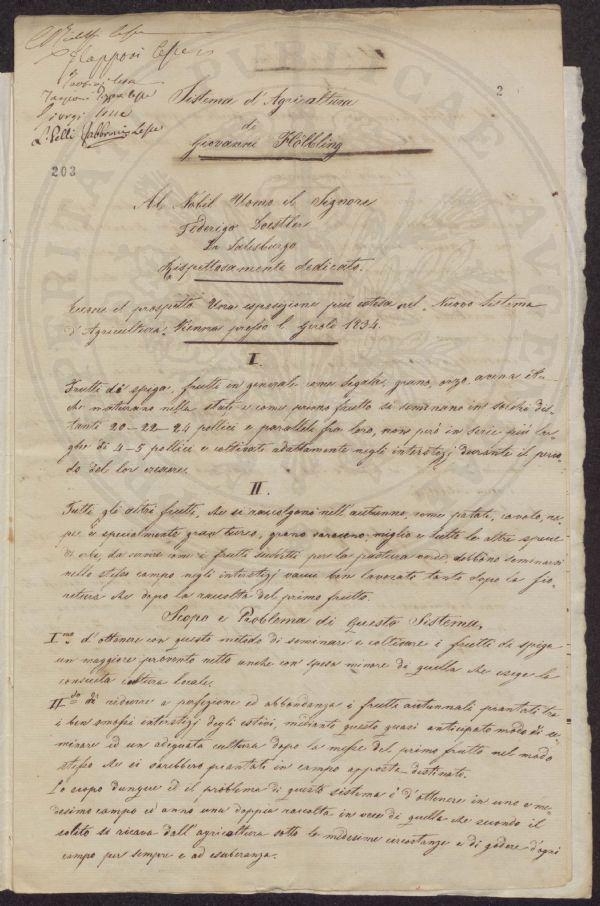 Lapponi Lesse
Giorgi Lesse
L. Pelli Fabbroni Lesse
203
2
Sistema d'Agricoltura
di
Giovanni Höbbling
Al Nobil Uomo il Signore
Federigo Loestler
Di Salesburgo
Rispettosamente dedicato.
il prospetto Una esposizione più estesa nel Nuovo Sistema
d'Agricultura. Vienna presso l. Gerold 1834.
I.
Frutti di spiga, frutti in generale come segale, grano, orzo, avena
che maturano nella state e come primo frutto si seminano in dis-
tanti 20-22-24 pollici e paralelle fra loro, non però in serie più lar-
ghe di 4-5 pollici e coltivate adattamente negli interstizj durante il perio-
do del lor crescere.
II.
Tutti gli altri frutti, che si raccolgono nell'autunno, come patate, cavolo, ra-
pe, e specialmente gran turco, grano saraceno, miglio e tutte le altre specie
di erbe, da servire come i frutti per la pastura verde, debbono seminarsi
nello stesso campo negli interstizj vacui ben lavorati tanto dopo la fio-
ritura che dopo la raccolta del primo frutto.
Scopo e Problema di Questo Sistema.
I.mo d'ottenere con questo metodo di seminare e coltivare i frutti di spiga
un maggiore provento netto anche con spesa minore di quella che esige la
consueta cultura locale.
II.do di ridurre a perfezione ed abbondanza i frutti autunnali piantati tra
i ben interstizj degli estivi, mediante questo quasi anticipato modo di se-
minare ed un adeguata cultura dopo la messe del primo frutto nel modo
stesso che si sarebbero piantati in campo apposta destinato.
Lo scopo dunque ed il problema di questo sistema è d'ottenere in uno e me-
desimo campo ed anno una doppia raccolta in vece di quella che secondo il
solito si ricava dall'agricoltura sotto le medesime circostanze e di godere d'ogni
campo per sempre e ad esuberanza.